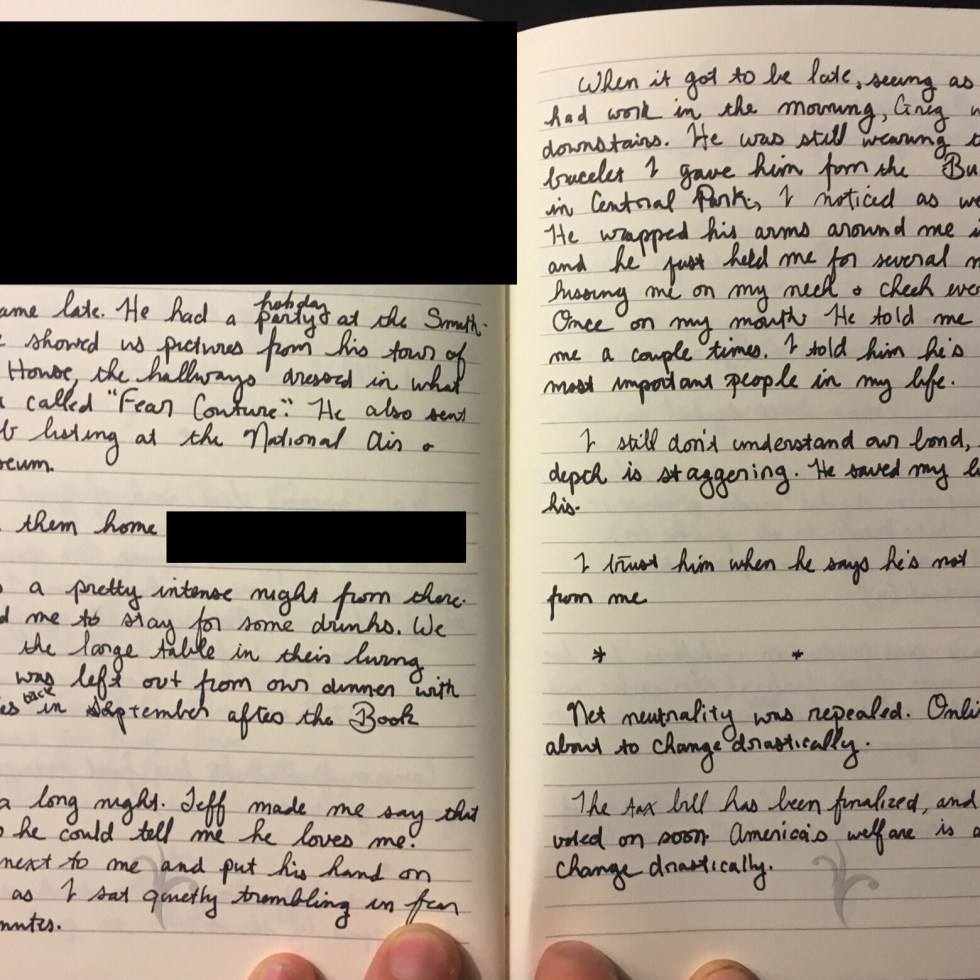 ame late. He had a party at the Smith-
showed us pictures from his tour of
House, the hallways dressed in what
called "Fear Couture." He also sent
listing at the National Air &
seum.
them home
a pretty intense night from there.
d me to stay for some drinks. We
the large table in their living
was left out from our dinner with
es back in September after the Book
a long night. Jeff made me say that
he could tell me he loves me.
next to me and put his hand on
as I sat quietly trembling in fear
nutes.
When it got to be late, seeing as
had work in the morning, Greg w
downstairs. He was still wearing t
bracelet I gave him from the Bu
in Central Park, I noticed as we
He wrapped his arms around me i
and he just held me for several m
kissing me on my neck & cheek ever
Once on my mouth. He told me
me a couple times. I told him he's
most important people in my life.
I still don't understand our bond,
depth is staggering. He saved my li
his.
I trust him when he says he's not
from me.
* *
Net neutrality was repealed. Onli
about to change drastically.
The tax bill has been finalized, and
voted on soon. America's welfare is a
change drastically.